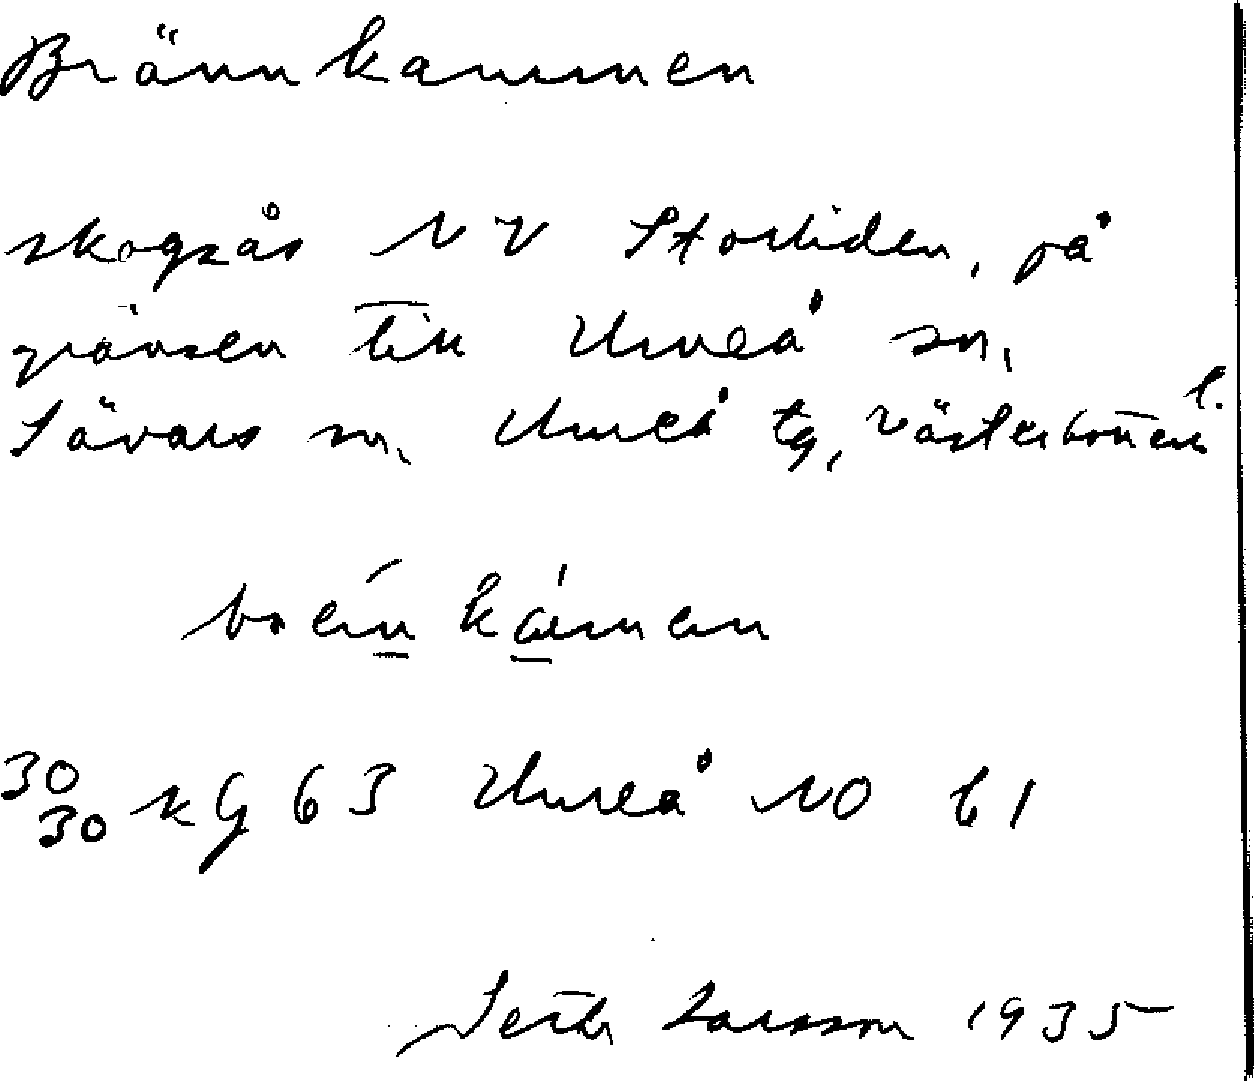 Brännkammen
skogsås NV Storliden, på
gränsen till Umeå sn,
Sävars sn, Umeå tg, Västerbottens l.
30
30 KG 63 Umeå NO 61
Seth Larsson 1935